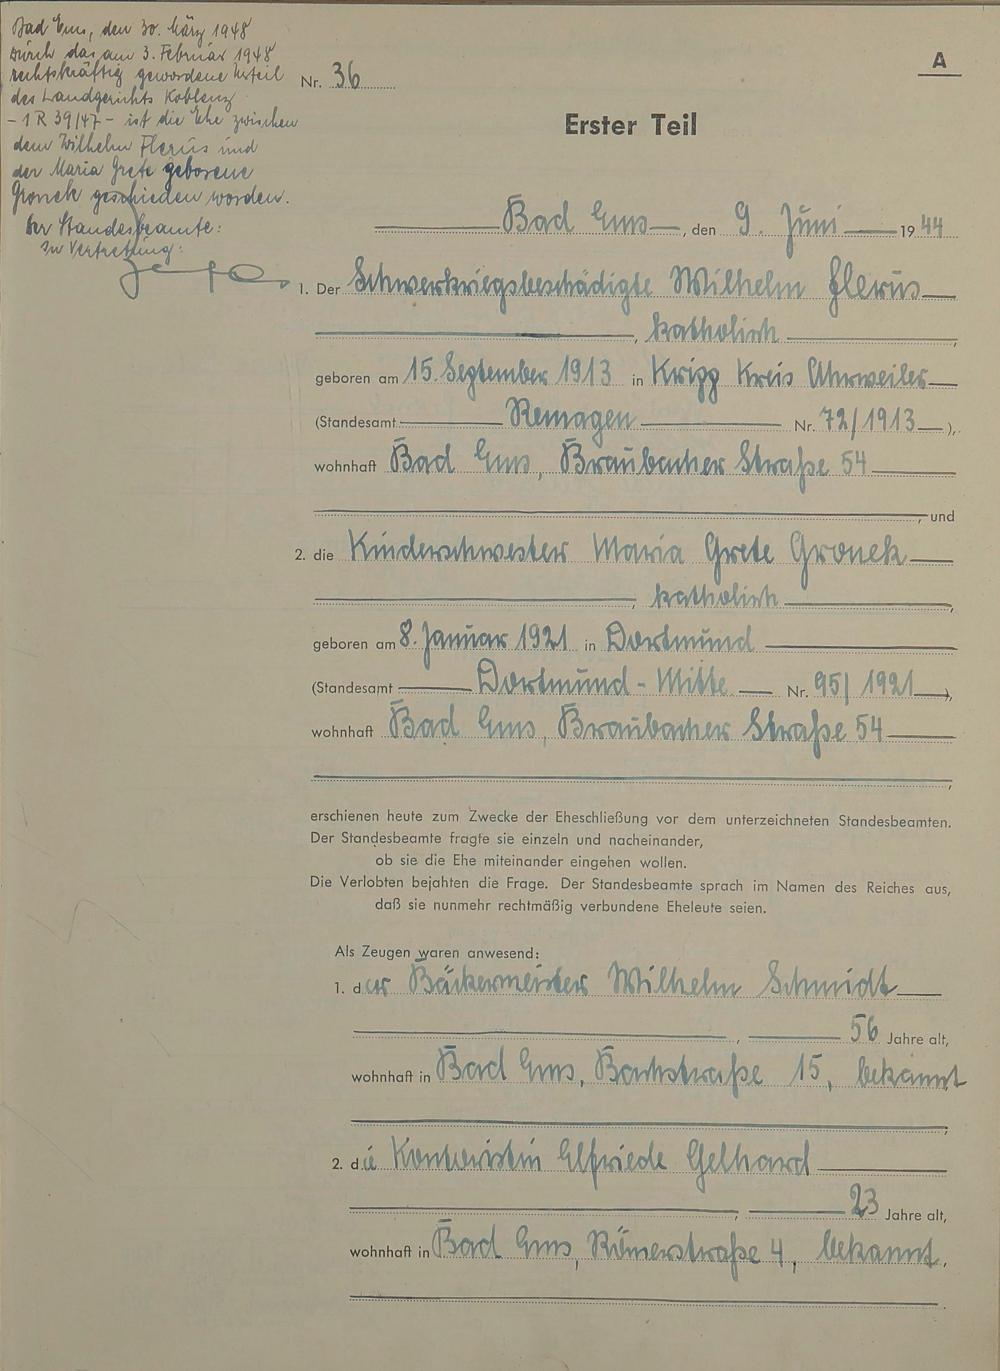 Bad Ems, den 30. März 1948
Durch das am 3. Februar 1948
rechtskräftig gewordene Urteil
des Landgerichts Koblenz
- 1 R 39/47 - ist die Ehe zwischen
dem Wilhelm Flerus und
der Maria Grete geborene
Gronek geschieden worden.
Der Standesbeamte:
In Vertretung:
A
Nr. 36
Erster Teil
Bad Ems, den 9. Juni 1944
1. Der Schwerkriegsbeschädigte Wilhelm Flerus
, katholisch,
geboren am 15. September 1913 in Kripp Kreis Ahrweiler
(Standesamt Remagen Nr. 72/1913),
wohnhaft Bad Ems, Braubacher Straße 54
, und
2. die Kinderschwester Maria Grete Gronek
, katholisch,
geboren am 8. Januar 1921 in Dortmund
(Standesamt Dortmund - Mitte Nr. 95/1921),
wohnhaft Bad Ems, Braubacher Straße 54
,
erschienen heute zum Zwecke der Eheschließung vor dem unterzeichneten Standesbeamten.
Der Standesbeamte fragte sie einzeln und nacheinander,
ob sie die Ehe miteinander eingehen wollen.
Die Verlobten bejahten die Frage. Der Standesbeamte sprach im Namen des Reiches aus,
daß sie nunmehr rechtmäßig verbundene Eheleute seien.
Als Zeugen waren anwesend:
1. der Bäckermeister Wilhelm Schmidt
, 56 Jahre alt,
wohnhaft in Bad Ems, Bachstraße 15, bekannt
;
2. die Kontoristin Elfriede Gelhard
, 23 Jahre alt,
wohnhaft in Bad Ems, Römerstraße 4, bekannt.